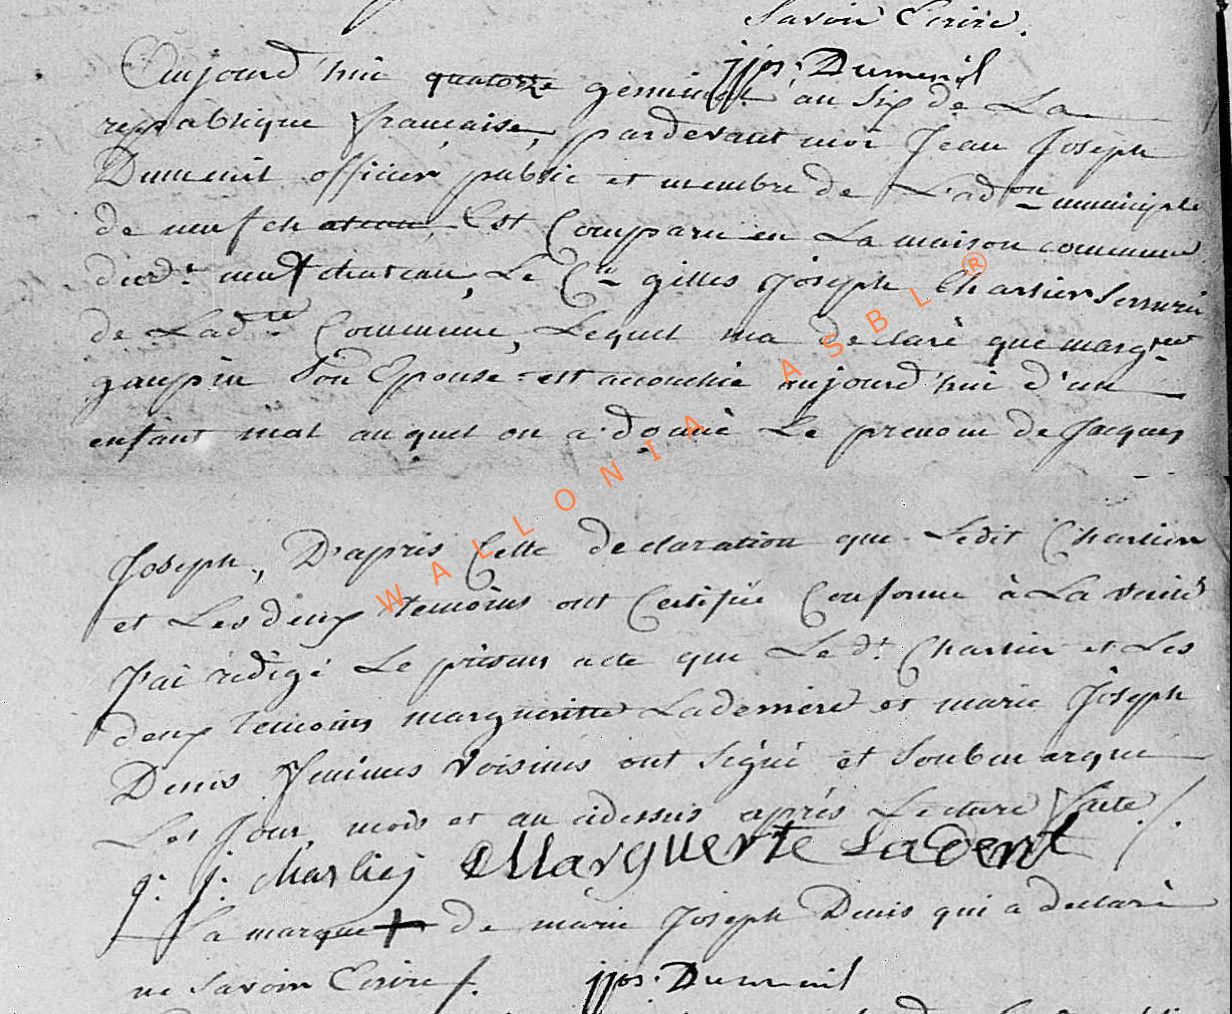 Savoir Ecrire.
jjos. Dumenil
Aujourd'hui quatorze germinal an Six de La
republique française, pardevant moi Jean Joseph
Dumenil officier public et membre de L'adon municiple
de neufchateau, Est Comparu en La maison commune
dud.t neufchateau, Le Cen gilles Joseph Charlier Serrurier
de Ladte Commune, Lequel ma declaré que margtte
gaupin Son Epouse est accouchée aujourd'hui d'un
enfant mal auquel on a donné Le prenom de Jacques
Joseph, D'après Cette declaration que Ledit Charlier
et Les deux temoins ont Certifié Conforme à La verité
J'ai rédigé Le présent acte que Le d.t Charlier et Les
deux temoins margueritte Laderriere et marie Joseph
Denis femmes voisines ont Signé et Soubmarqué
Les Jour, mois et an cidessus après Lecture faite ./.
g. j. charlier Marguerte Ladent
La marque + de marie Joseph Denis qui a declaré
ne Savoir Ecrire /.
jjos. Dumenil
WALLONIA ASBL ®